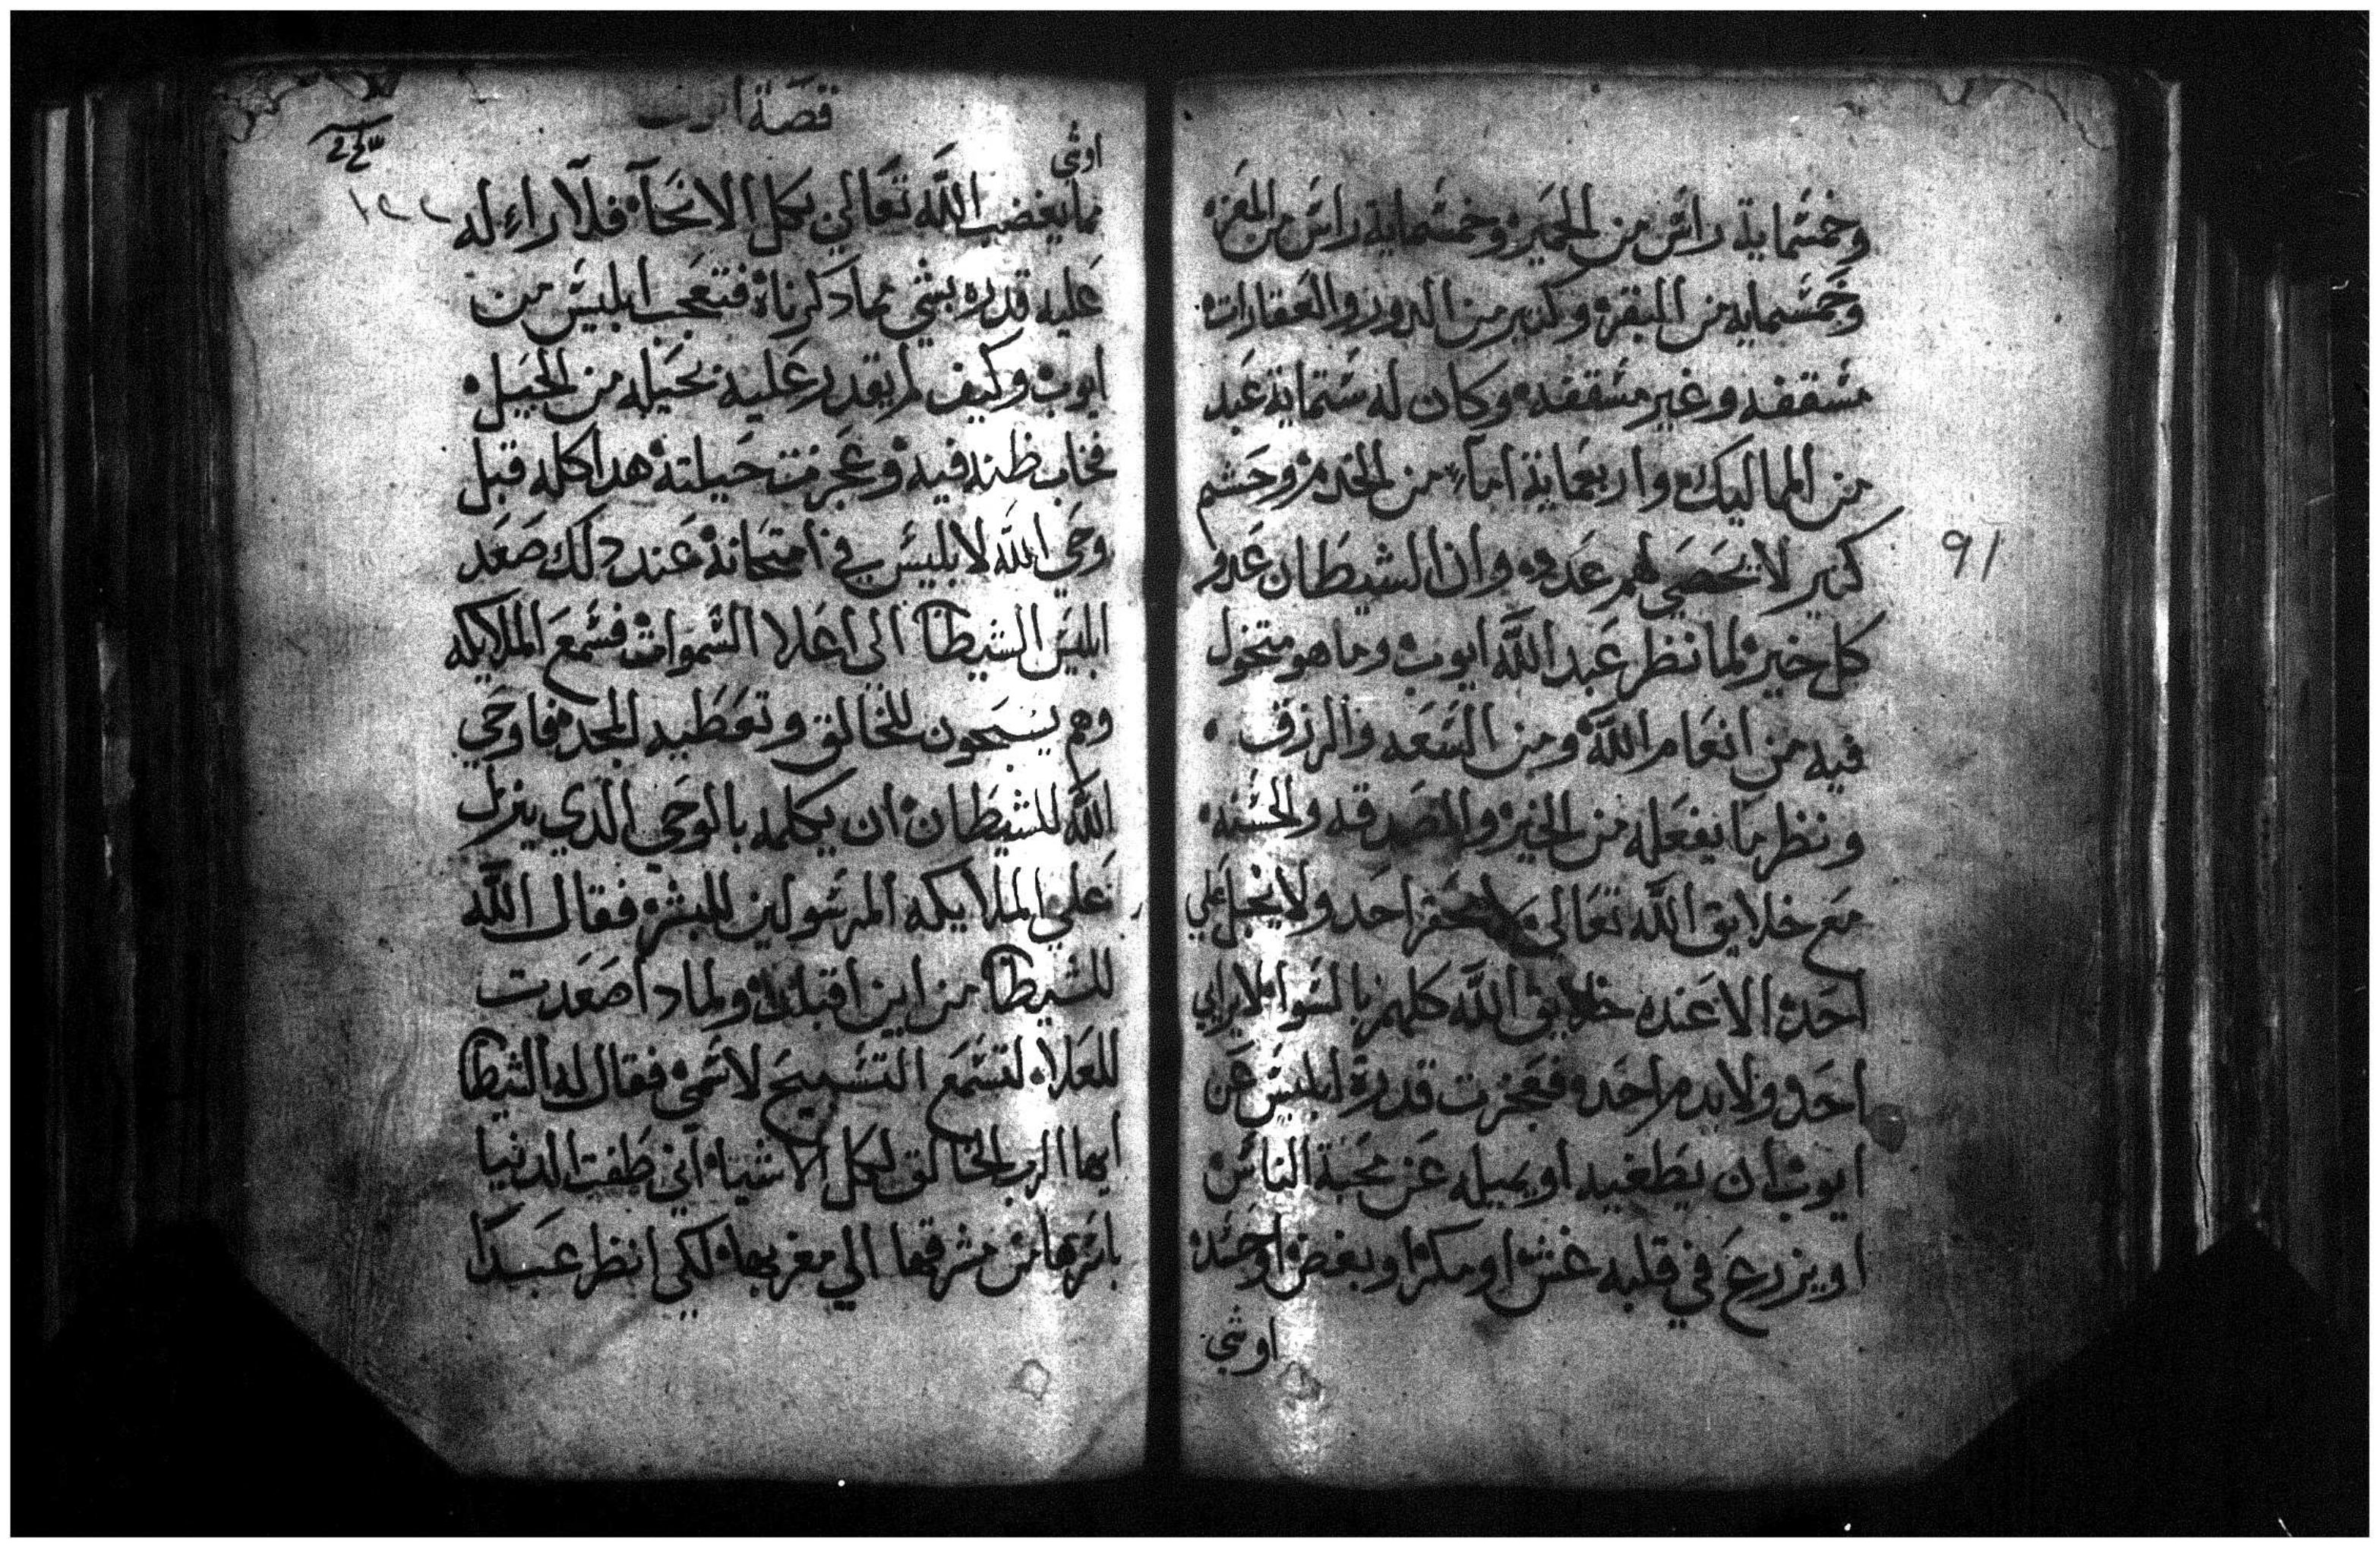 وخمسماية راس من الحمير وخمسماية راس من المعزه
وخمسمايه من البقره وكتير من الدور والعقارات
مسقفه وغير مسقفه وكان له ستماية عبد
من المماليك واربعماية امآء من الخدم وحشم
كتير لا يحصي لهم عدده وان الشيطان عدو
كل خير لما نظر عبد الله ايوب وما هو متخول
فيه من انعام الله ومن السعه والرزق
ونظر ما يفعله من الخير والصدقه والحسنه
مع خلايق الله تعالي لا يحقر احد ولا يبخل علي
احد الا عنده خلايق الله كلهم بالسوا لا يرابي
احد ولا يدم احد فعجزت قدرة ابليس عن
ايوب ان يطغيه او يميله عن محبة الناس
او يزرع في قلبه غش او مكر او بغض او حسد
اوشي
91
قصة
١٢٢
اوشي
مما يغضب الله تعالي بكل الانحآ فلا راء له
عليه قدره بشي مما دكرناه فتعجب ابليس من
ايوب وكيف لم يقدر عليه بحيله من الحيل
فخاب ظنه فيه وعجزت حيلته هدا كله قبل
وحي الله لابليس في امتحانه عند دلك صعد
ابليس الشيطا الى اعلا السموات فسمع الملايكه
وهم يسبحون للخالق وتعطيه المجد فاوحي
الله للشيطان ان يكلمه بالوحي الدي ينزل
علي الملايكه المرسولين للبشر فقال الله
للشيطا من اين اقبلت ولمادا صعدت
للعلاء لتسمع التسبيح لاسمي فقال له الشيطا
ايها الرب الخالق لكل الاشياء اني طفت الدنيا
باسرها من مشرقها الي مغربها لكي انظر عبدًا